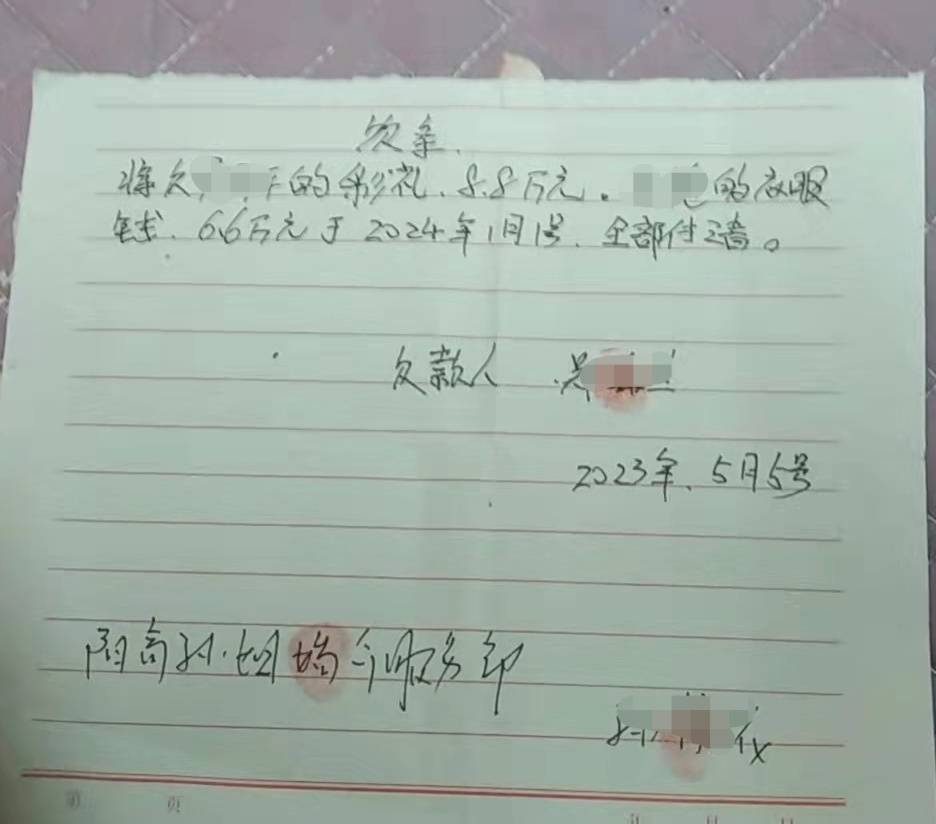 欠条.
将欠的彩礼.8.8万元。的衣服
钱.6.6万元于2024年1月1号.全部付清。
欠款人
2023年.5月5号
阳高孙姐婚介服务部
第 页